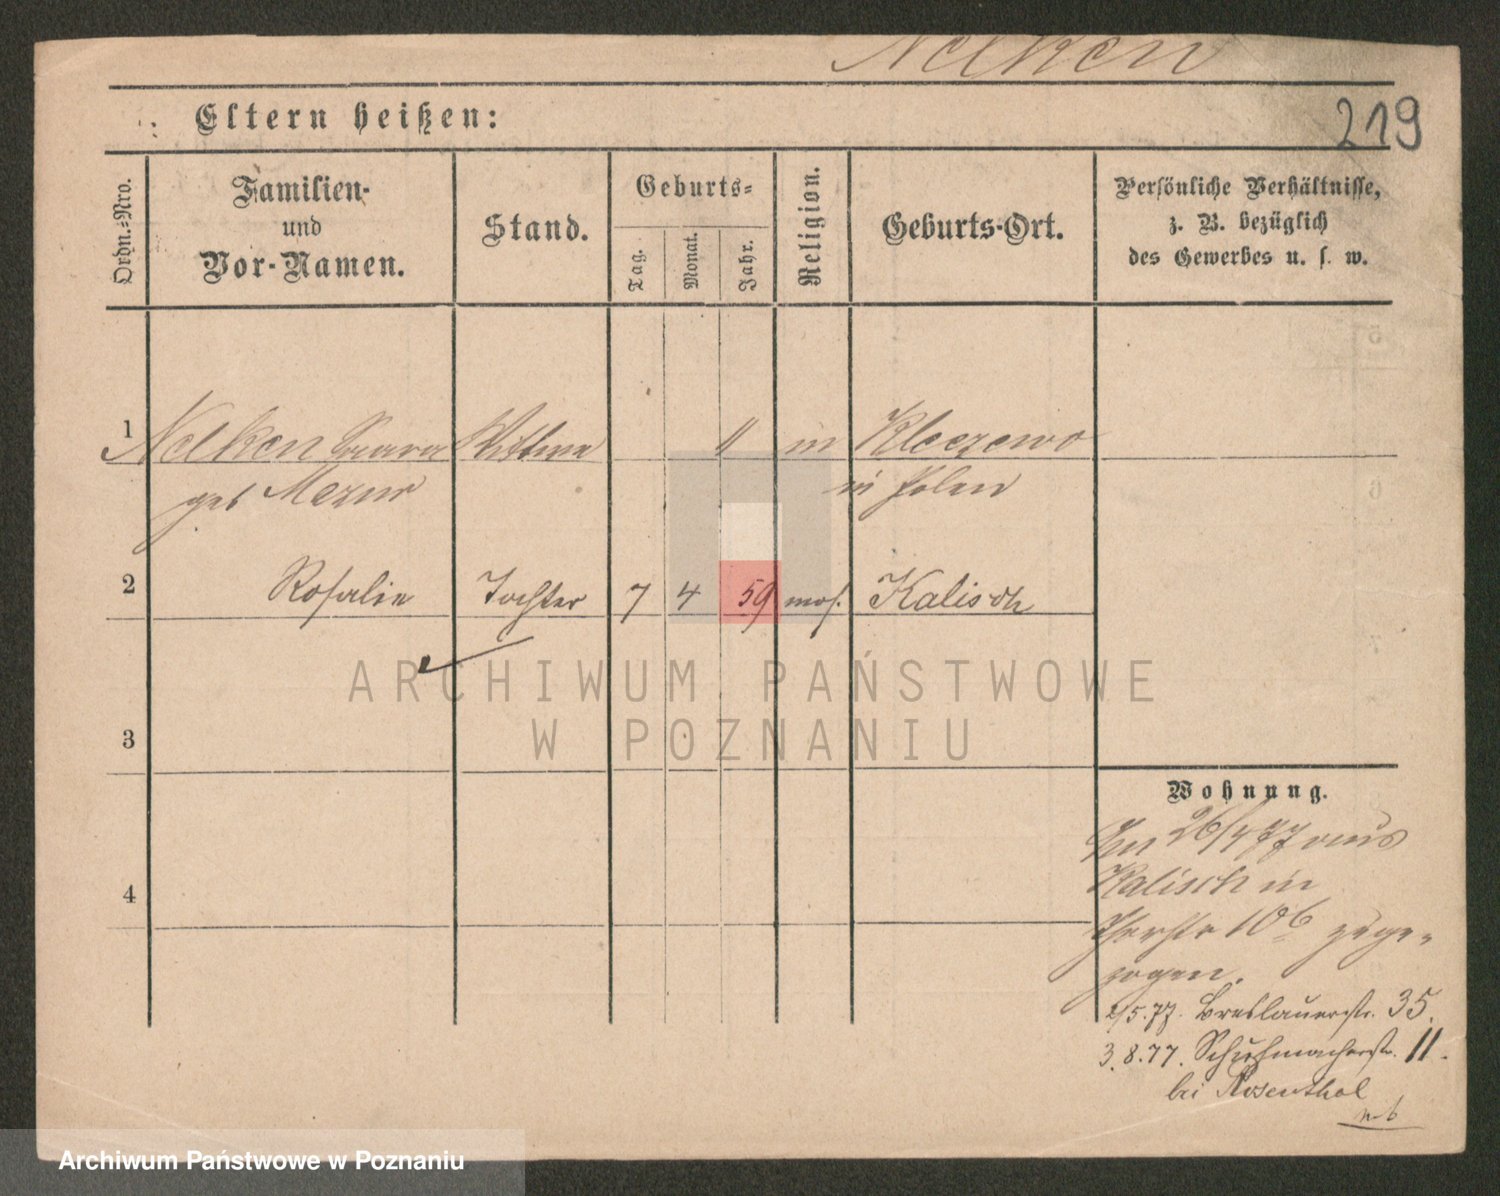 Nelken
Eltern heißen:
219
Ordn.-Nro.
Familien-
und
Vor-Namen.
Stand.
Geburts-
Tag.
Monat.
Jahr.
Religion.
Geburts-Ort.
Persönliche Verhältnisse,
z. B. bezüglich
des Gewerbes u. s. w.
1 Nelken Wittwe in Kleczewo
geb Mazur in Polen
2 Rosalie Tochter 7 4 59 mos. Kalisch
ARCHIWUM PAŃSTWOWE
W POZNANIU
3
4
Wohnung.
26/4 77 aus
Kalisch in
10b zuge-
zogen.
2/5.77. Breslauerstr. 35.
3.8.77. Schuhmacherstr. 11.
bei Rosenthal
Archiwum Państwowe w Poznaniu